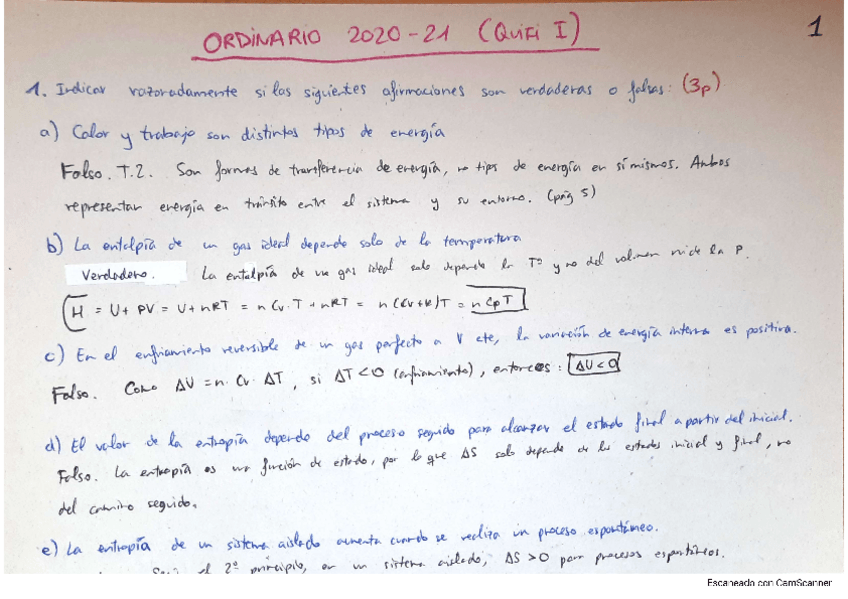 ORDINARIO 2020-21 (QUIFI I)
1
1. Indicar razonadamente si las siguientes afirmaciones son verdaderas o falsas: (3p)
a) Calor y trabajo son distintos tipos de energía
Falso. T.2. Son formas de transferencia de energía, no tipos de energía en sí mismos. Ambos
representan energía en tránsito entre el sistema y su entorno. (pág 5)
b) La entalpía de un gas ideal depende solo de la temperatura
Verdadero. La entalpía de un gas ideal solo depende la Tª y no del volumen ni de la P.
H = U + PV = U + nRT = n Cv · T + nRT = n (Cv + R) T = n Cp T
c) En el enfriamiento reversible de un gas perfecto a V cte, la variación de energía interna es positiva.
Falso. Como ΔU = n · Cv · ΔT, si ΔT < 0 (enfriamiento), entonces: ΔU < 0
d) El valor de la entropía depende del proceso seguido para alcanzar el estado final a partir del inicial.
Falso. La entropía es una función de estado, por lo que ΔS solo depende de los estados inicial y final, no
del camino seguido.
e) La entropía de un sistema aislado aumenta cuando se realiza un proceso espontáneo.
el 2º principio, en un sistema aislado, ΔS > 0 para procesos espontáneos.
Escaneado con CamScanner